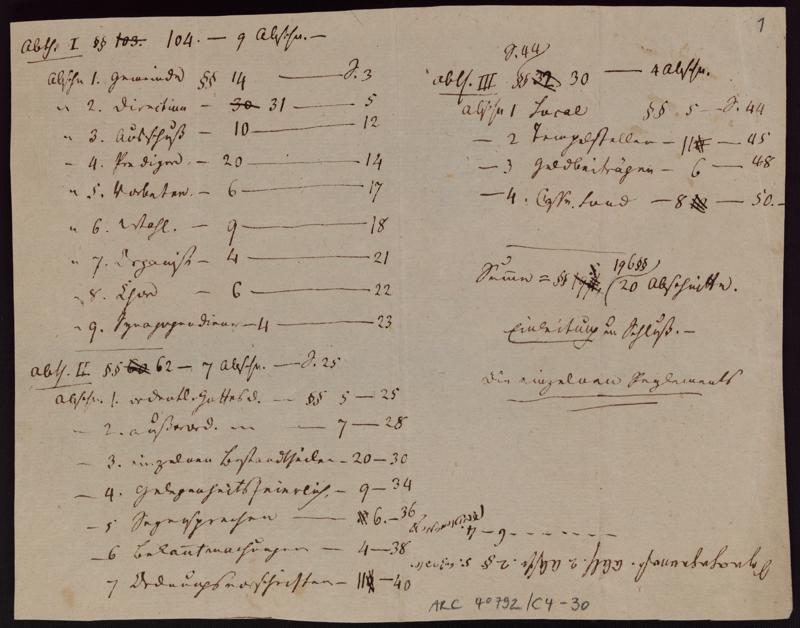 1
Abth. I §§ 103. 104. — 9 Abschn. —
Abschn 1. Gemeinde §§ 14 — S. 3
" 2. Direction — 30 31 — 5
" 3. Ausschuß — 10 — 12
" 4. Prediger — 20 — 14
" 5. Vorbeter — 6 — 17
" 6. Wahl. — 9 — 18
" 7. Organist — 4 — 21
" 8. Chor — 6 — 22
" 9. Synagogendiener — 4 — 23
Abth. II §§ 60 62 — 7 Abschn. — S. 25
Abschn. 1. ordentl. Gottesd. — §§ 5 — 25
— 2. außerord. — 7 — 28
— 3. einzelnen Bestandtheilen — 20 — 30
— 4. Gelegenheitsfeierlich. — 9 — 34
— 5 Segensprechen — 6. — 36
— 6 Bekanntmachungen — 4 — 38
7 Ordnungsvorschriften — 11 — 40
S. 44
Abth. III §§ 32 30 — 4 Abschn.
Abschn 1 Local §§ 5 — S. 44
— 2 Tempelstellen — 11 — 45
— 3 Geldbeiträgen — 6 — 48
— 4. fond — 8 — 50. —
196 §§
Summe = §§ (20 Abschnitte.
Einleitung u Schluß. —
Die einzelnen Reglements
Abth. 2. Absch. 2 §
ARC 4° 792/C4-30